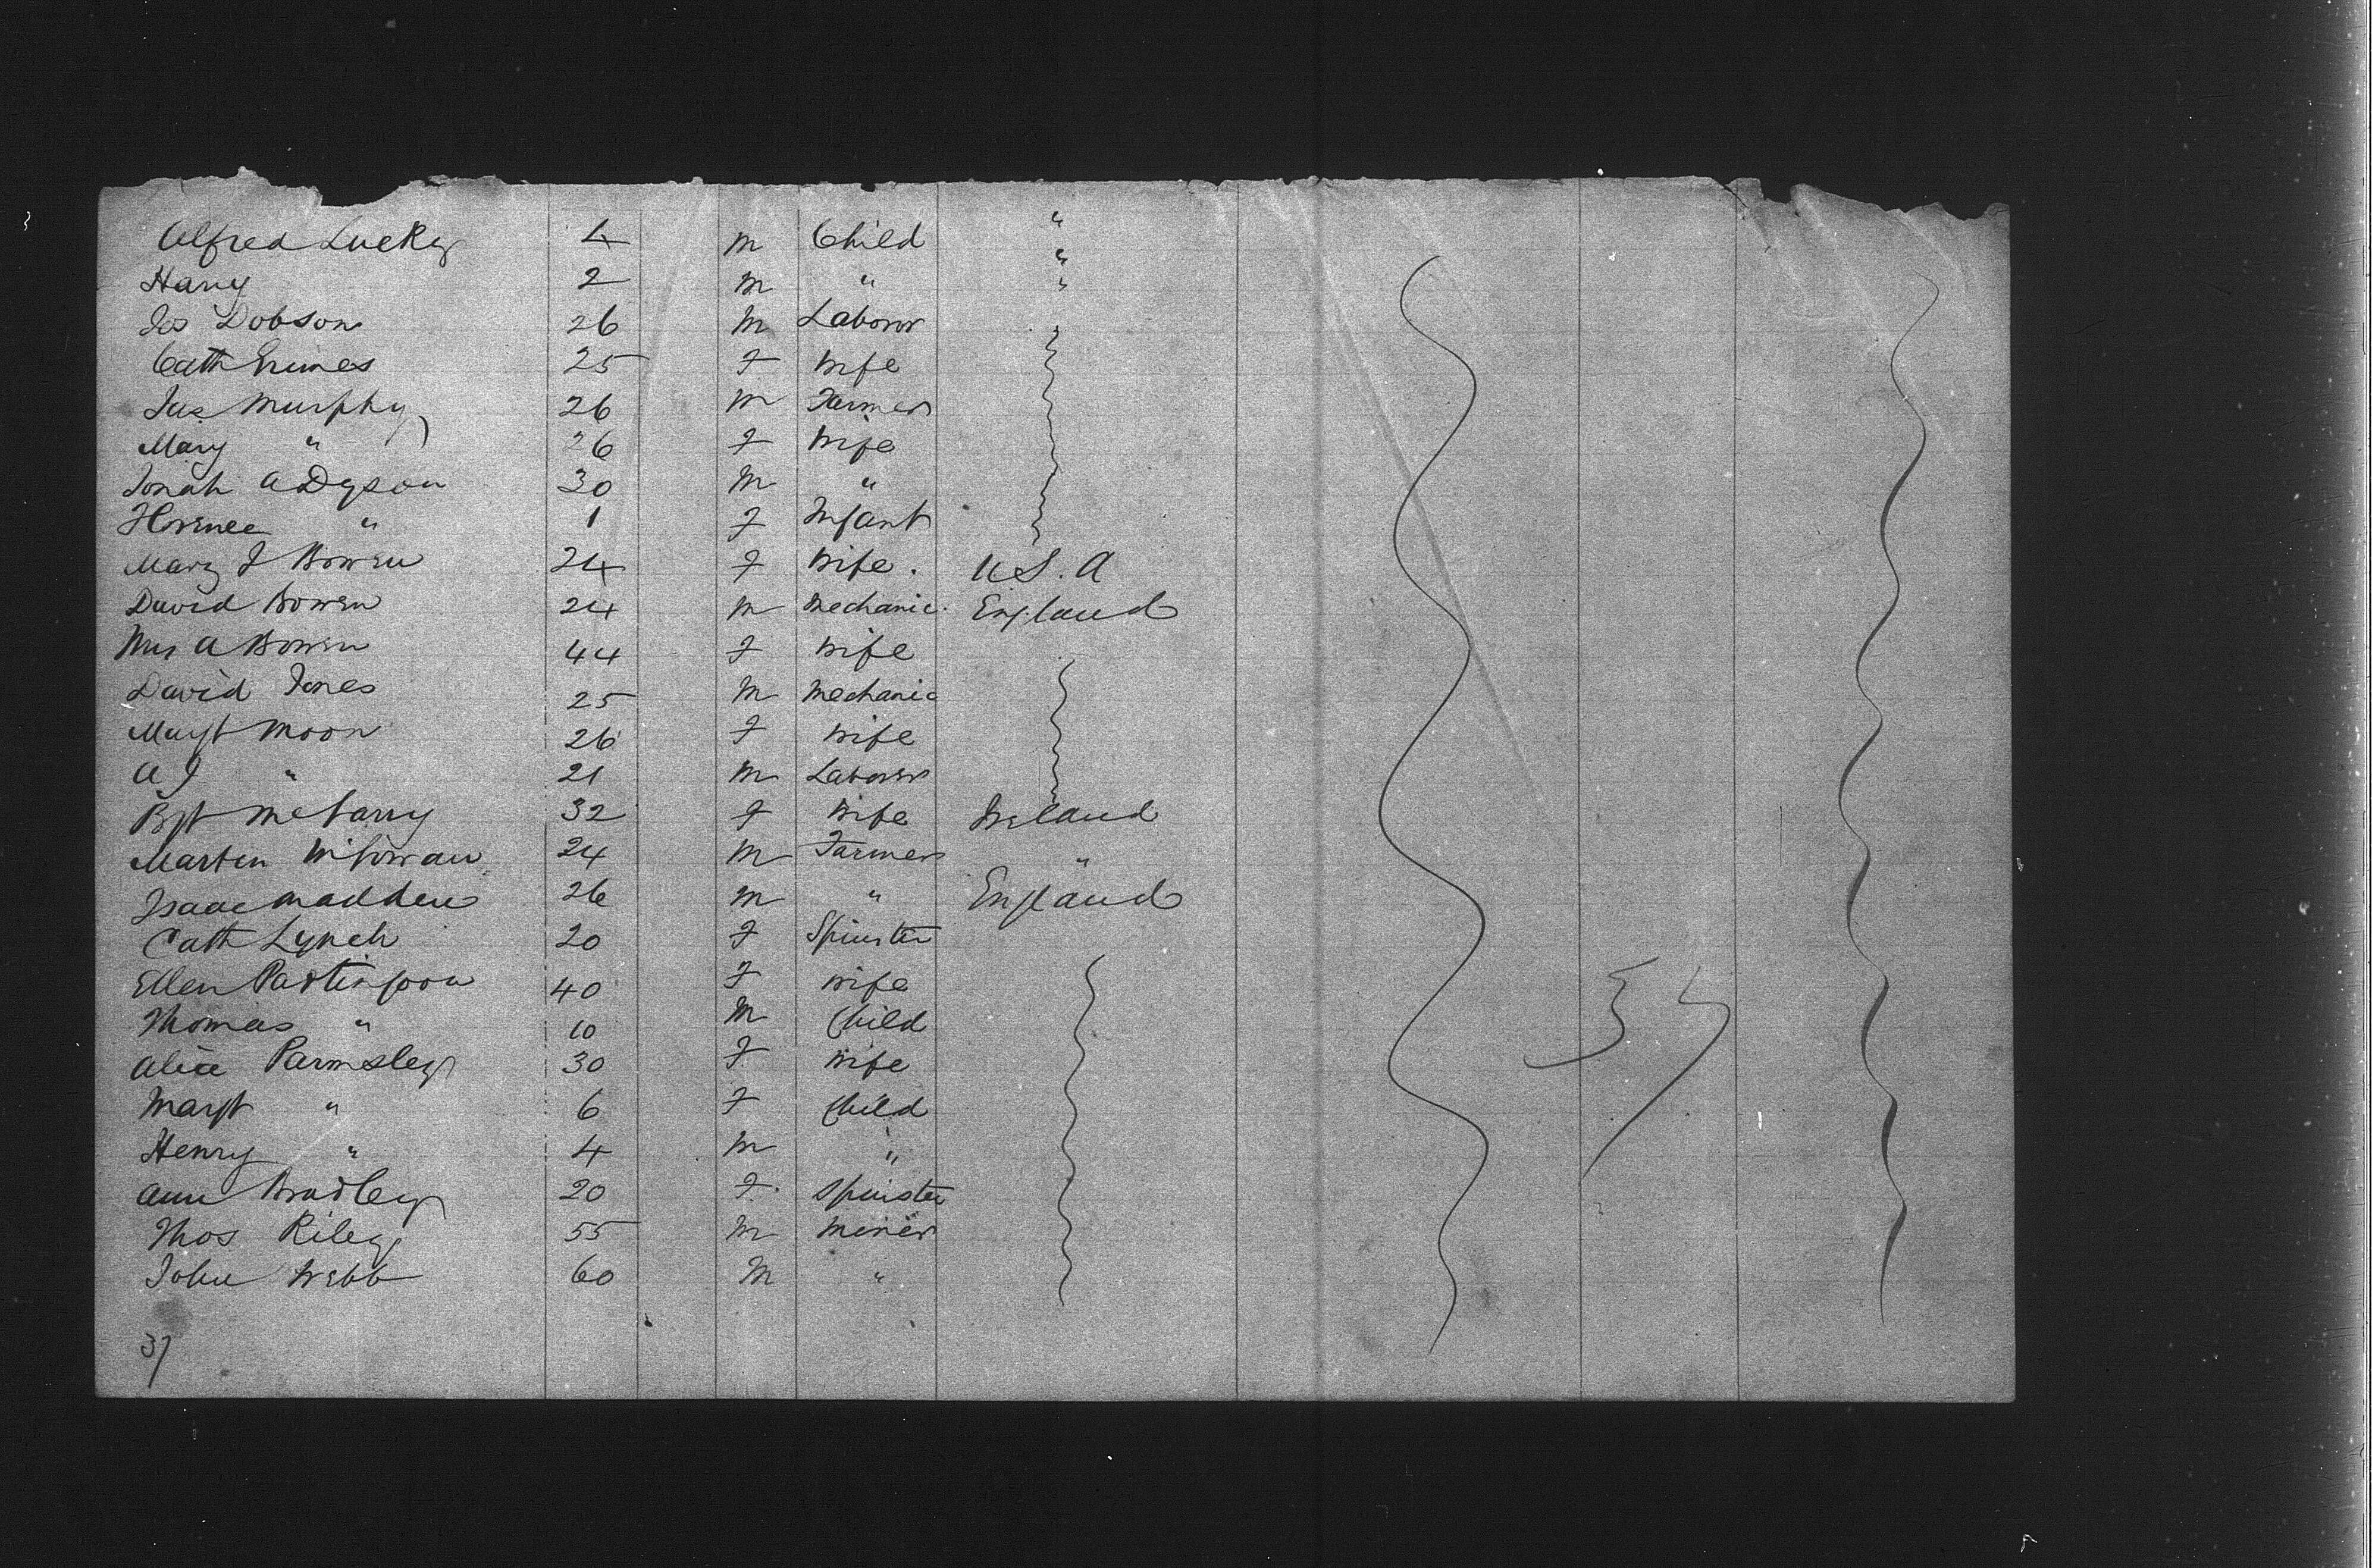 Alfred Lucky 4 m Child "
Harry 2 m " "
Jos Dobson 26 m Laborer
Cath Grimes 25 F Wife
Jas Murphy 26 m Farmer
Mary " 26 F Wife
Jonah A Dyson 30 m "
Florence " 1 F Infant
Mary J Bowen 24 F Wife. U S. A
David Bowen 24 m Mechanic. England
Mrs A Bowen 44 F Wife
David Jones 25 m Mechanic
Margt Moon 26 F Wife
A J " 21 m Laborer
Bgt McGarry 32 F Wife Ireland
Marten McGowan 24 m Farmer "
Isaac Madden 26 m " England
Cath Lynch 20 F Spinster
Ellen 40 F Wife
Thomas " 10 m Child
Alice Parmsley 30 F Wife
Margt " 6 F Child
Henry " 4 m "
Ann Bradley 20 F. Spinster
Thos Riley 55 m Miner
John Webb 60 m "
37